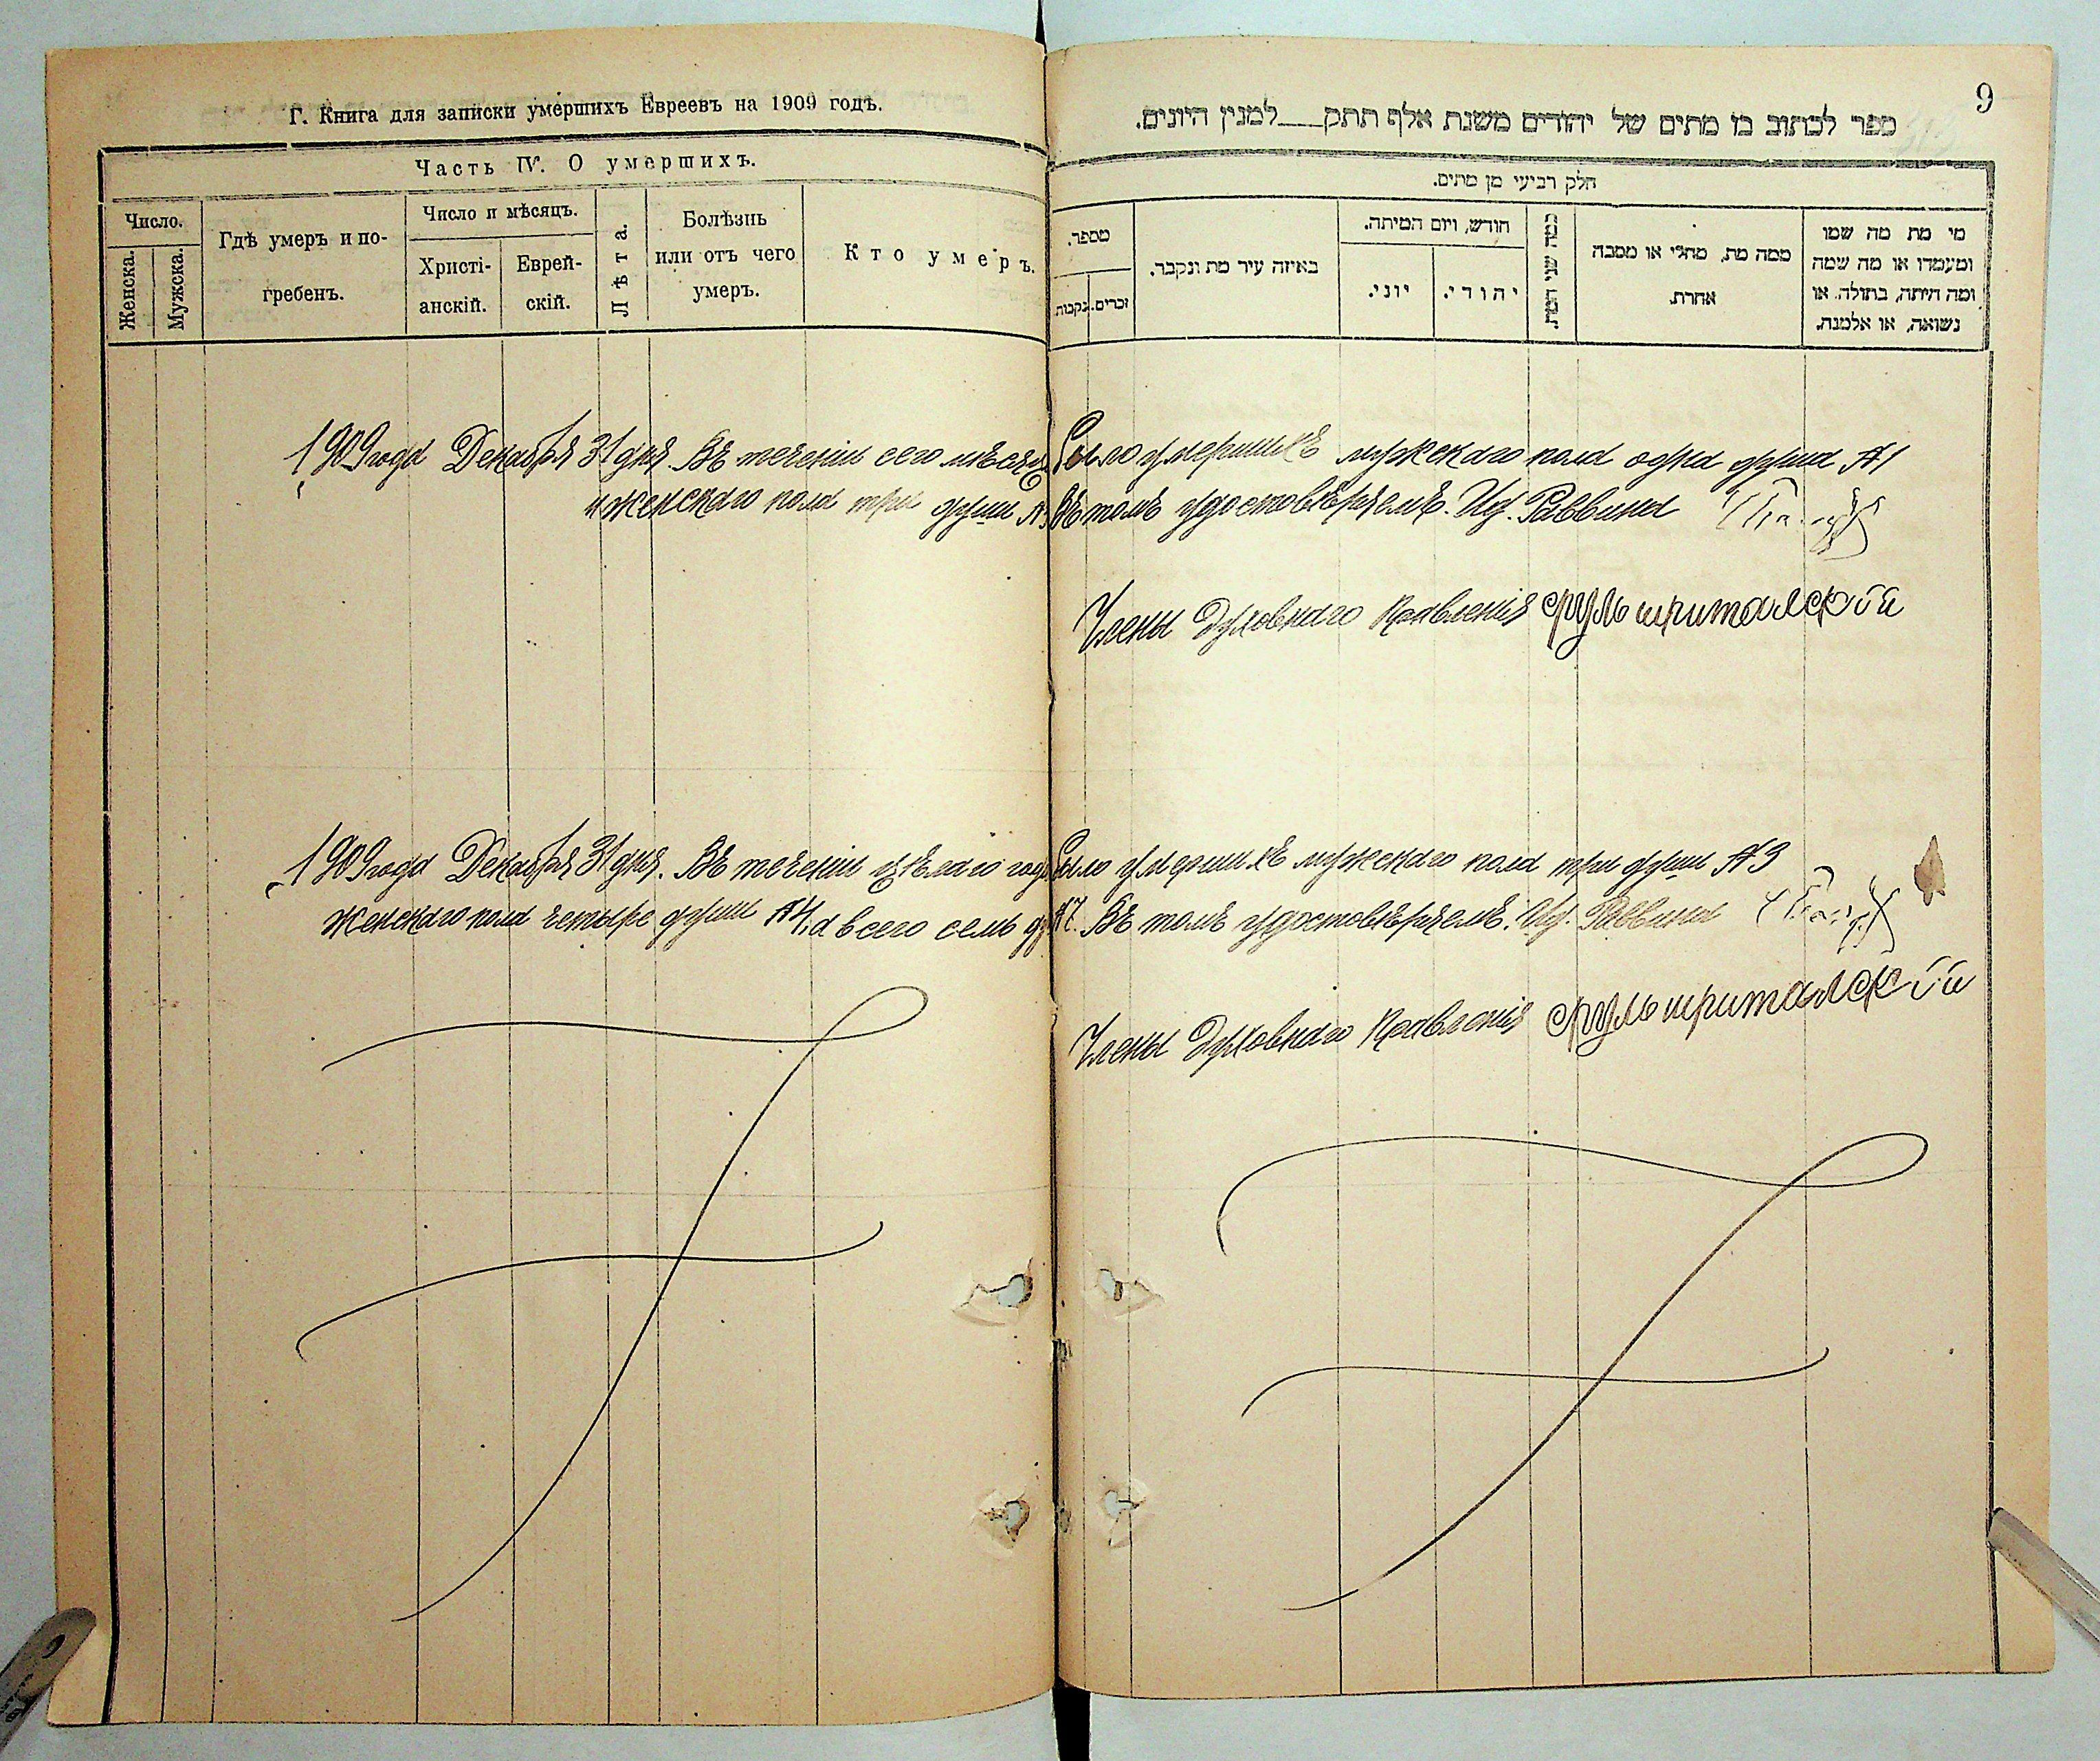 Г. Книга для записки умершихъ Евреевъ на 1909 годъ.
Часть IV. О умершихъ.
Число.
Женска.
Мужска.
Гдѣ умеръ и по-
гребенъ.
Число и мѣсяцъ.
Христі-
анскій.
Еврей-
скій.
Лѣта.
Болѣзнь
или отъ чего
умеръ.
Кто умеръ.
9
ספר לכתוב בו מתים של יהודים משנת אלף תתק___למנין היונים.
חלק רביעי מן מתים.
מי מת מה שמו
ומעמדו או מה שמה
ומה היתה, בתולה, או
נשואה, או אלמנה.
ממה מת, מחלי או מסבה
אחרת.
כמה שני המת
חודש, ויום המיתה.
יהודי.
יוני.
באיזה עיר מת ונקבר.
מספר.
זכרים.
נקבות
1909 года Декабря 31 дня. Въ теченіи сего мѣсяца было умершихъ мужскаго пола одна душа №1
и женскаго пола три души въ томъ удостовѣряемъ. И.д. Раввина
Члены Духовнаго Правленія сруль шриталскій
1909 года Декабря 31 дня. Въ теченіи цѣлаго года было умершихъ мужскаго пола три души №3
женскаго пола четыре души №4, а всего семь №7. Въ томъ удостовѣряемъ. И.д. Раввина
Члены Духовнаго Правленія сруль шриталскій